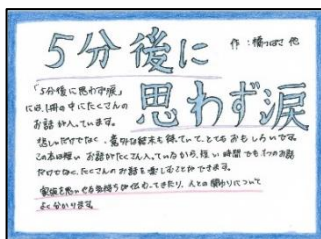 5分後に
作：橋つばさ 他
思わず涙
「5分後に思わず涙」
には、1冊の中にたくさんの
お話が入っています。
悲しいだけでなく、意外な結末も待っていて、とてもおもしろいです。
この本は短いお話がたくさん入っているから、短い時間でも1つのお話
だけでなく、たくさんのお話を楽しむことができます。
家族を思いやる気持ちが伝わってきたり、人との関わりについて
よく分かります。